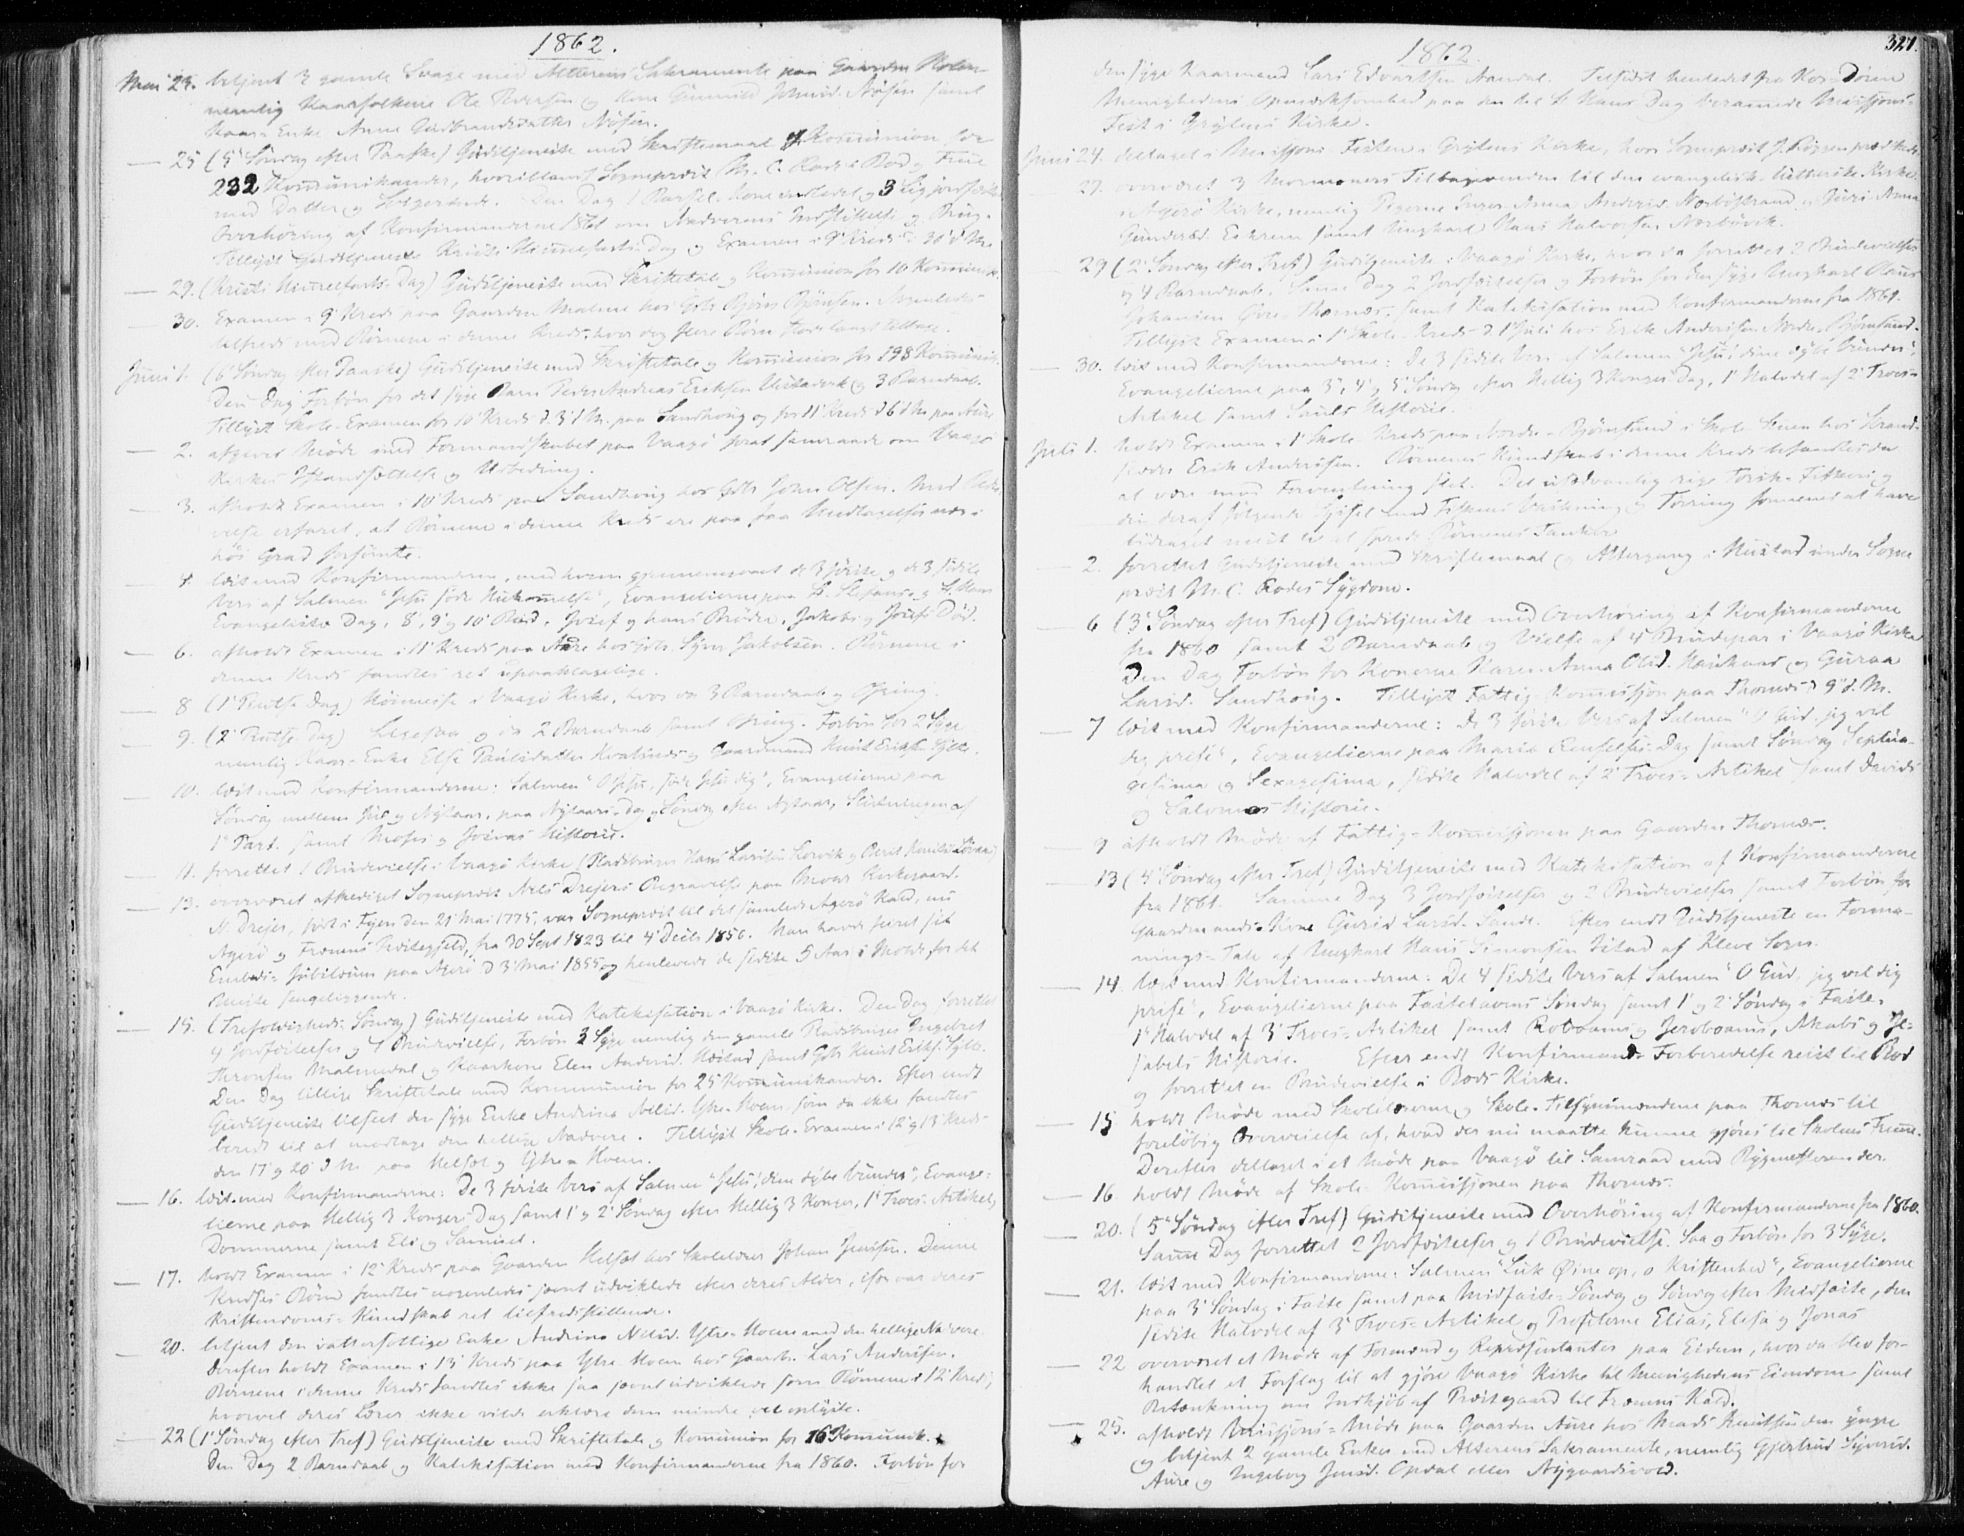 1862.
Mai 24. betjent 3 gamle Svage med Alterens Sakramente paa Gaarden
nemlig Kaarfolkene Ole Pedersen og Kone Gunnild Johnsd. Nösen samt
Kaar-Enke Anne Gudbrandsdatter Nösen.
— 25 (5' Söndag efter Paaske) Gudstjeneste med Skriftemaal og Kommunion for
232 Kommunikanter, hvoriblandt Sogneprest M. C. Rode i Bod og Frue
med Datter og Den Dag 1 Barsel-Kone indledet og 3 Lig jordfæstede
Overhöring af Konfirmanderne 1861 om Nadverens Indstiftelse og Brug.
Tillyst Gudstjeneste Kristi Himmelfarts Dag og Examen i 9' Kreds d. 30' d. M.
— 29. (Kristi Himmelfarts-Dag) Gudstjeneste med Skriftetale og Kommunion for 10 Kommunik.
— 30. Examen i 9' Kreds paa Gaarden Malme hos Gbr. Björn Björnsen. Nogenledes
tilfreds med Börnene i denne Kreds, hvor dog flere Börn stode langt tilbage.
Juni 1. (6' Söndag efter Paaske) Gudstjeneste med Skriftetale og Kommunion for 198 Kommunik.
Den Dag Forbön for det syge Barn Peder Andreas Eriksen og 3 Barndaab.
Tillyst Skole-Examen for 10' Kreds d. 3' d. M. paa Sandhoug og for 11' Kreds d. 6' d. M. paa Aure
— 2. afgivet Möde med Formandskabet paa Vaagö samt samraade om Vaagö
Kirkes Istandsættelse og Udbedring.
— 3. afholdt Examen i 10' Kreds paa Sandhoug hos Gbr. John Olsen. Med
velse erfaret, at Börnene i denne Kreds ere paa faa Undtagelser nær i
höi Grad forsömte.
— 4. læst med Konfirmanderne, med hvem gjennemgaaet de 3 förste og de 3 sidste
Vers af Salmen "Jesu söde Hukommelse", Evangelierne paa St. Stefans og St. Hans
Evangelists Dag, 8', 9' og 10' Bud, Josef og hans Brödre, Jakobs og Josefs Död.
— 6. afholdt Examen i 11' Kreds paa Aure hos Gbr. Syver Jakobsen. Börnene i
denne Kreds fandtes ret upaaklagelige.
— 8 (1' Pintse Dag) Höimesse i Vaagö Kirke, hvor og 3 Barndaab og Offring.
— 9. (2' Pintse-Dag) Ligesaa og da 2 Barndaab samt Offring. Forbön for 2 Syge
nemlig Kaar-Enke Else Paulsdatter og Gaardmand Knut Eriksen
— 10. læst med Konfirmanderne: Salmen "O Jesu, söde Jesu dig", Evangelierne paa
Söndag mellem Jul og Nytaar, paa Nytaars-Dag og Söndag efter Nytaar, Slutningen af
1' Part. samt Moses og Josvas Historie.
— 11. forrettet 1 Brudevielse i Vaagö Kirke (Pladsbruger Hans Larsen og Berit
— 13. overværet afskediget Sogneprest Niels Drejers Begravelse paa Molde Kirkegaard.
N. Drejer, född i Fyen den 21' Mai 1775, var Sogneprest til det samlede Agerö Kald, nu
Agerö og Frænens Prestegjeld, fra 30 Sept 1823 til 4' Decbr 1856. Han havde feiret sit
Embeds-Jubilæum paa Agerö d. 3' Mai 1855 og henlevede de sidste 5 Aar i Molde for det
Meste sengeliggende.
— 15. (Trefoldigheds-Söndag) Gudstjeneste med Katekisation i Vaagö Kirke. Den Dag forrettet
4 Jordfæstelser og 1 Brudevielse, Forbön 3 Syge nemlig den gamle Pladsbruger Engebret
Thronsen Malmedal og Kaarkone Elen Andersd. Hostad samt Gbr. Knut Eriks.
Den Dag tillige Skriftetale med Kommunion for 25 Kommunikanter. Efter endt
Gudstjeneste tilseet den syge Enke Andrina Nilsd. Ytre-Hoem, som da ikke fandtes
beredt til at modtage den hellige Nadvere. Tillyst Skole-Examen i 12' og 13' Kreds
den 17' og 20' d. M. paa Helset og Ytre Hoem.
— 16. læst med Konfirmanderne: De 3 förste Vers af Salmen "Jesu, dine dybe Vunder", Evange-
lierne paa Hellig 3 Konger-Dag samt 1' og 2' Söndag efter Hellig 3 Konger, 1' Troes-Artikel,
Dommerne samt Eli og Samuel.
— 17. holdt Examen i 12' Kreds paa Gaarden Helset hos Skolelærer Johan Jensen. Denne
Kredses Börn fandtes nogenledes jevnt udviklede efter deres Alder, ifor var deres
Kristendoms-Kundskab ret tilfredsstillende.
— 20. betjent den vattersottige Enke Andrina Nilsd. Ytre-Hoem med den hellige Nadvere.
Derefter holdt Examen i 13' Kreds paa Ytre Hoem hos Gaardbr. Lars Andersen.
Börnene i denne Kreds fandtes ikke saa jevnt udviklede som Börnene i 12' Kreds,
hvorvel deres Lærer ikke vilde erklære dem mindre vel oplyste.
— 22 (1' Söndag efter Tref) Gudstjeneste med Skriftetale og Kommunion for 16 Kommunik.
Den Dag 2 Barndaab og Katekisation med Konfirmanderne fra 1860. Forbön for
1862. 327.
den syge Kaarmand Lars Edvartsen Aandal. Tilsidst henledet fra Kor-Dören
Menighedens Opmærksomhed paa den til St. Hans Dag berammede Missions-
Fest i Grytens Kirke.
Juni 24. deltaget i Missions-Festen i Grytens Kirke, hvor Sogneprest J. Riggen prædikede.
27. overværet 3 Mormoners Tilbagevenden til den evangelisk-lutterske Kirke
i Agerö Kirke, nemlig Pigerne Inger Anna Andersd. og Guri Anna
Gundersd. samt Ungkarl Hans Halvorsen
— 29 (2' Söndag efter Tref) Gudstjeneste i Vaagö Kirke, hvor da forrettet 2 Brudevielser
og 4 Barndaab. Samme Dag 2 Jordfæstelser og Forbön for den syge Ungkarl Olaus
Johansen Övre-Thornæs, samt Katekisation med Konfirmanderne fra 1861.
Tillyst Examen i 1' Skole-Kreds d. 1' Juli hos Erik Andersen Nordre-Björnsund.
— 30. læst med Konfirmanderne: De 3 sidste Vers af Salmen "Jesu, dine dybe Vunder",
Evangelierne paa 3', 4' og 5' Söndag efter Hellig 3 Konger Dag, 1' Halvdel af 2' Troes-
Artikel samt Sauls Historie.
Juli 1. holdt Examen i 1' Skole-Kreds paa Nordre-Björnsund i Skole-Stuen hos Strand-
sidder Erik Andersen. Börnenes Kundskab i denne Kreds befandtes da
at være mod Forventning slet. Det usædvanlig rige Torsk-Fiskeri og
den deraf fölgende Syssel med Fiskens Virkning og Törring formenes at have
bidraget mest til at sprede Börnenes Tanker.
— 2. forrettet Gudstjeneste med Skriftemaal og Altergang i Hustad under Sogne
prest M. C. Rodes Sygdom.
— 6 (3' Söndag efter Tref) Gudstjeneste med Overhöring af Konfirmanderne
fra 1860 samt 2 Barndaab og Vielse af 4 Brudepar i Vaagö Kirke.
Den Dag Forbön for Konerne Karen Anna Olsd. Haukaas og Guraa
Larsd. Sandhoug. Tillyst Fattig-Kommissjon paa Thornæs d. 9' d. M.
— 7 læst med Konfirmanderne: De 3 förste Vers af Salmen "O Gud, jeg vel
dig prise", Evangelierne paa Mariæ Renselses-Dag samt Söndag Septua-
gesima og Sexagesima, sidste Halvdel af 2' Troes-Artikel samt Davids
og Salomos Historie.
— 9 afholdt Möde af Fattig-Kommissjonen paa Gaarden Thornæs.
— 13 (4' Söndag efter Tref) Gudstjeneste med Katekisation af Konfirmanderne
fra 1861. Samme Dag 3 Jordfæstelser og 2 Brudevielser samt Forbön for
Gaardmands-Kone Gurid Larsd. Sande. Efter endt Gudstjeneste en Forma-
nings-Tale af Ungkarl Hans Simonsen Istad af Kleve Sogn.
— 14. læst med Konfirmanderne: De 4 sidste Vers af Salmen "O Gud, jeg vel dig
prise", Evangelierne paa Fastelavns Söndag samt 1' og 2' Söndag i Faste,
1' Halvdel af 3' Troes-Artikel samt Roboams og Jeroboams, Akabs og Je-
sabels Historie. Efter endt Konfirmand-Forberedelse reist til Bod
og forrettet en Brudevielse i Bods Kirke.
— 15 holdt Möde med Skolelærerne og Skole-Tilsynsmændene paa Thornæs til
forelöbig Overveielse af, hvad der nu maatte kunne gjöres til Skolens Fremme.
Derefter deltaget i et Möde paa Vaagö til Samraad med Bygmesteren der.
— 16 holdt Möde af Skole-Kommissjonen paa Thornæs.
— 20. (5' Söndag efter Tref) Gudstjeneste med Overhöring af Konfirmanderne fra 1860.
Samme Dag forrettet 2 Jordfæstelser og 1 Brudevielse. Saa og Forbön for 3 Syge.
— 21. læst med Konfirmanderne: Salmen "Luk Öine op, o Kristenhed", Evangelierne
paa 3' Söndag i Faste samt paa Midfaste-Söndag og Söndag efter Midfaste, den
sidste Halvdel af 3' Troes-Artikel og Profeterne Elias, Elisa og Jonas
— 22 overværet et Möde af Formænd og Repræsentanter paa Eiden, hvor da blev for-
handlet et Forslag til at gjöre Vaagö Kirke til Menighedens Eiendom samt
Betænkning om Indkjöb af Præstegaard til Frænens Kald.
— 25. afholdt Missjons-Möde paa Gaarden Aure hos Mads Knutsen den yngre
og betjent 2 gamle Enker med Alterens Sakramente, nemlig Gjertrud Syversd.
Aure og Ingeborg Jensd. Opdal eller Nygaardsvold.